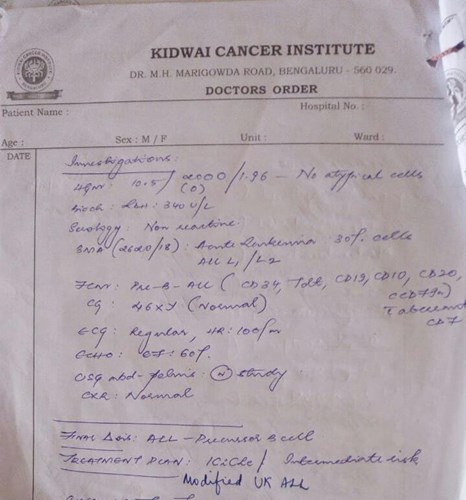 KIDWAI CANCER INSTITUTE
DR. M.H. MARIGOWDA ROAD, BENGALURU - 560 029.
DOCTORS ORDER
Patient Name :
Hospital No. :
Age :
Sex : M / F
Unit :
Ward :
DATE
Investigations:
10.5 / 2000 / 1.96 - No atypical cells
(0)
Bioch : LDH : 340 U/L
Serology : Non reactive
BMA (2620/18) : Acute Leukemia 30% cells
ALL L1/L2
Pre-B-ALL (CD34, Tdt, CD19, CD10, CD20,
CCD79a)
CG : 46XY (Normal)
T aberrant
CD7
ECG : Regular, HR : 100/m
ECHO : EF : 60%
USG abd-pelvis : (N) study
CXR : Normal
FINAL : ALL - Precursor B cell
TREATMENT PLAN : ICiCLe / Intermediate risk
Modified UK ALL